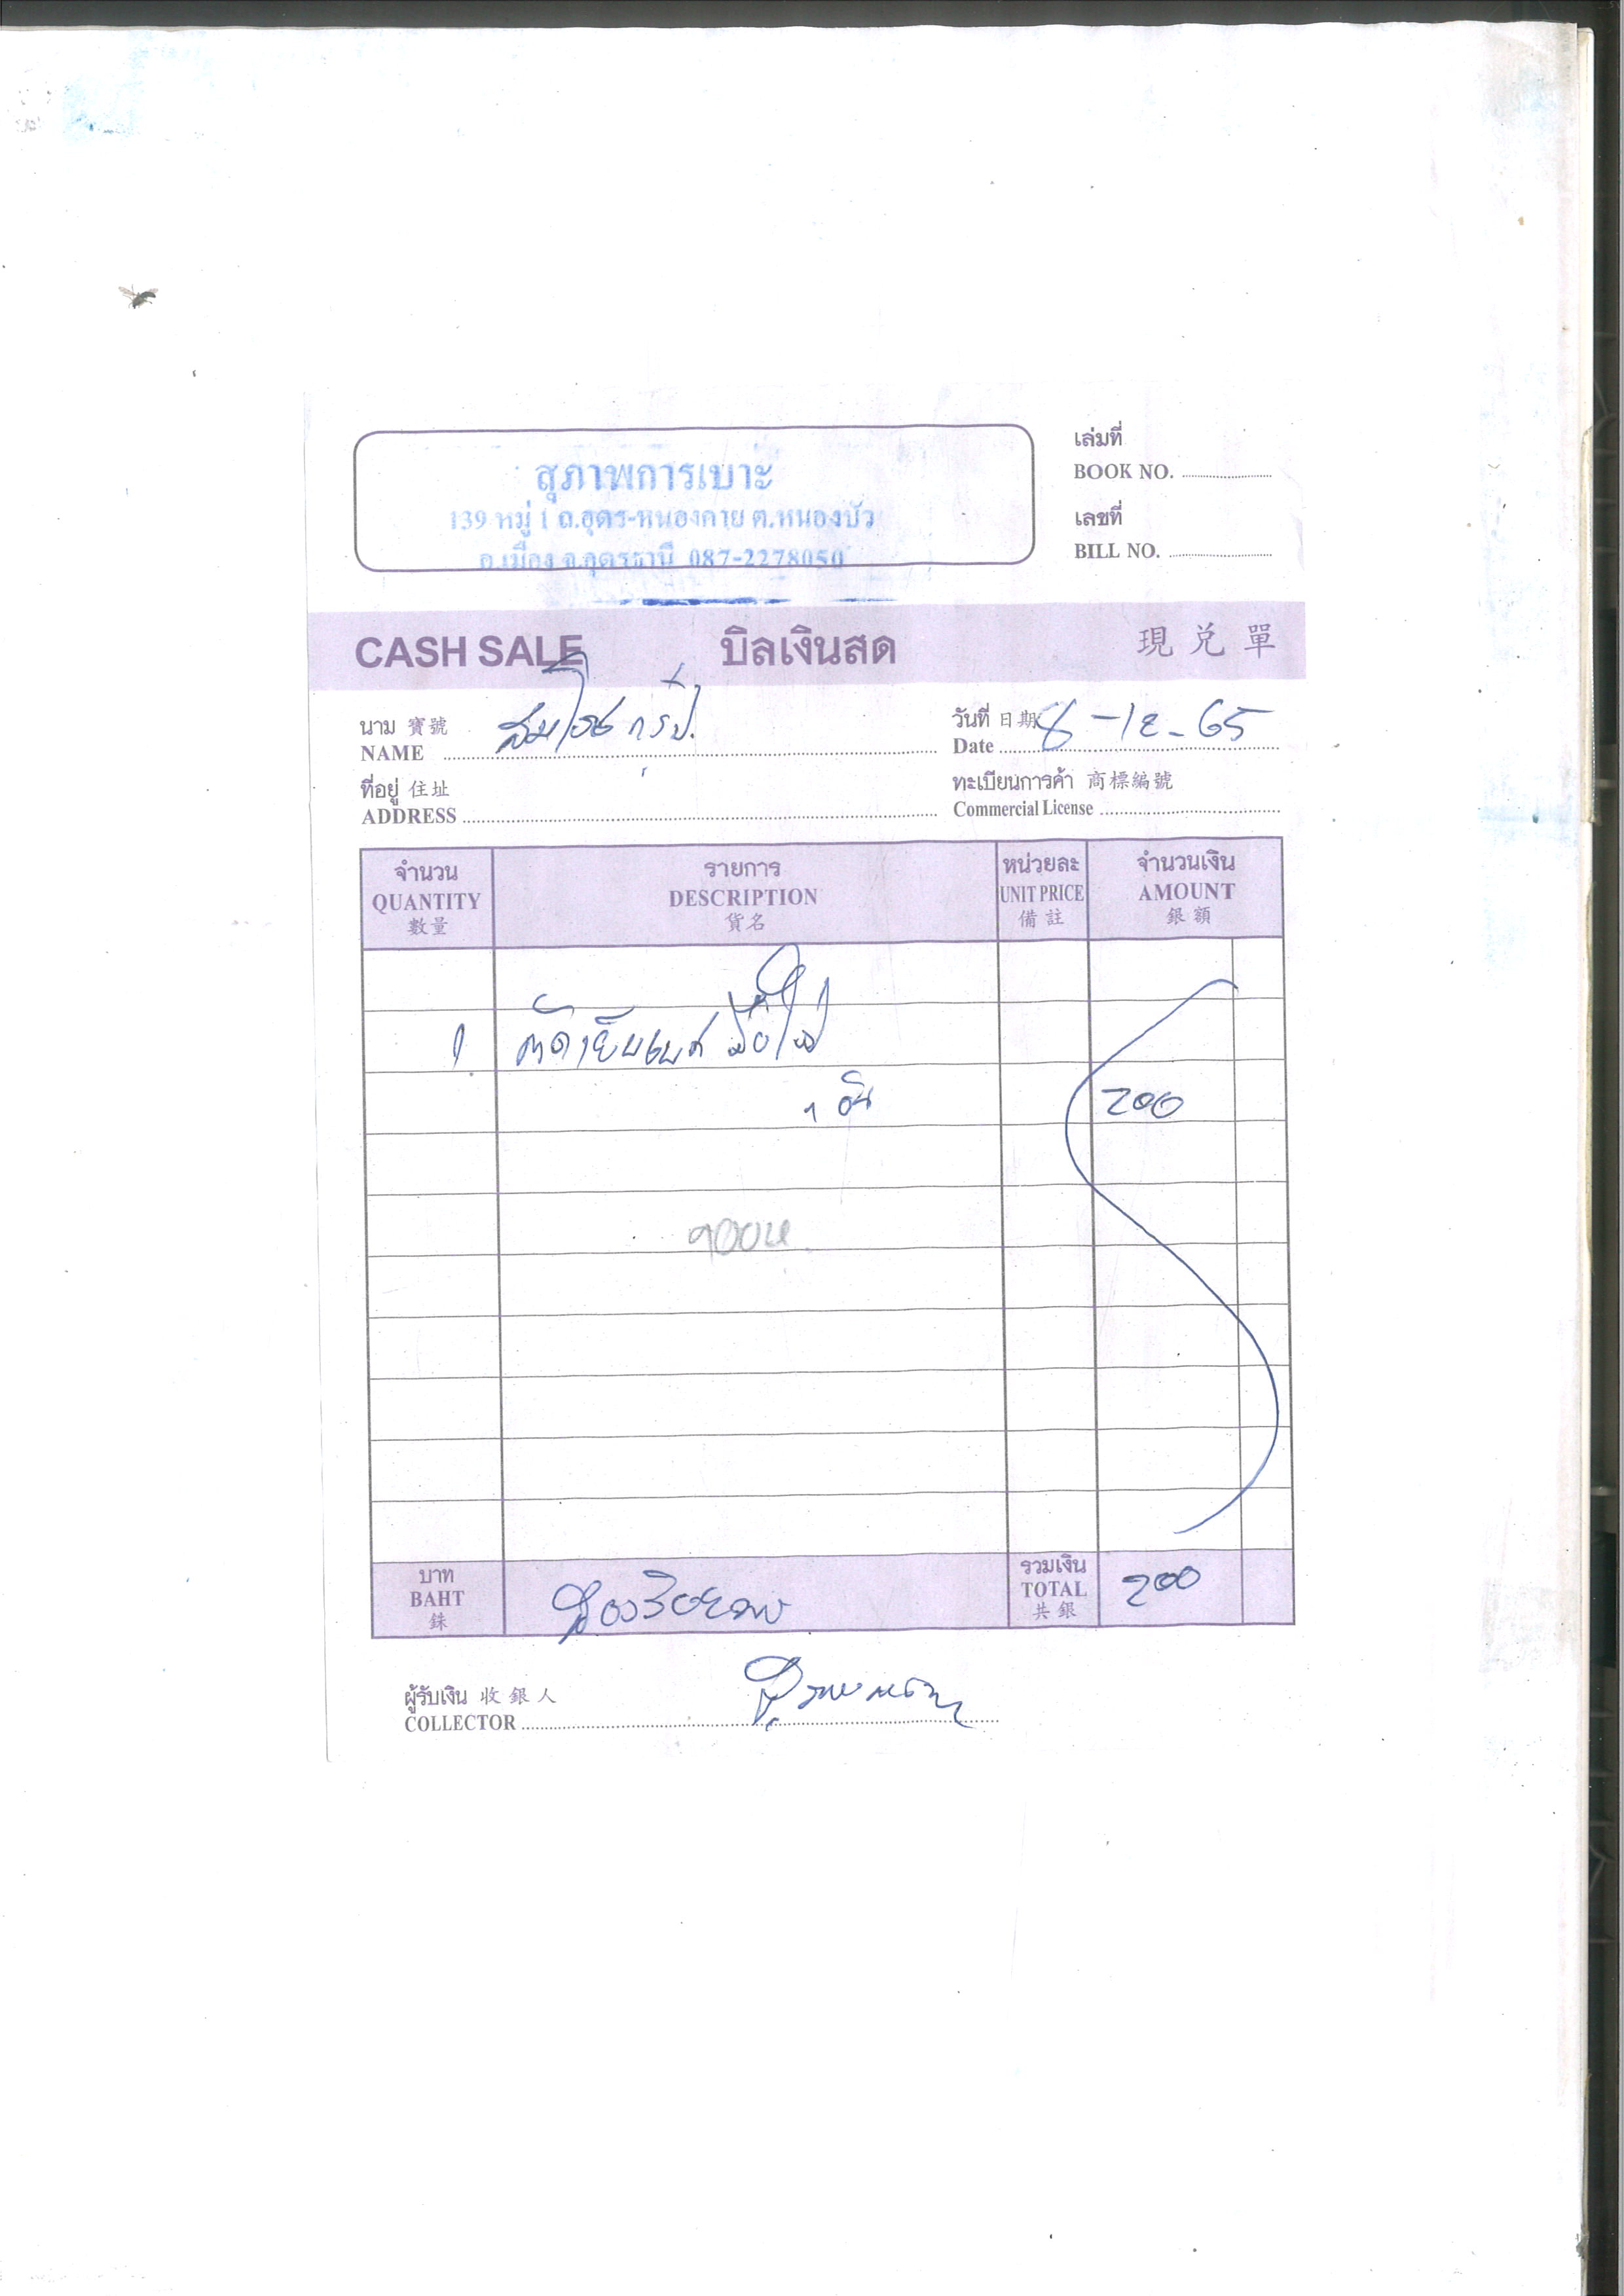 สุภาพการเบาะ
139 หมู่ 1 ถ.อุดร-หนองคาย ต.หนองบัว
อ.เมือง จ.อุดรธานี 087-2278050
เล่มที่
BOOK NO.
เลขที่
BILL NO.
CASH SALE บิลเงินสด 現兌單
นาม 寳號
NAME สมโชค กรุ๊ป
วันที่ 日期
Date 8-12-65
ที่อยู่ 住址
ADDRESS
ทะเบียนการค้า 商標編號
Commercial License
จำนวน รายการ หน่วยละ จำนวนเงิน
QUANTITY DESCRIPTION UNIT PRICE AMOUNT
數量 貨名 備註 銀額
1 ตัดเย็บ
1 200
บาท
BAHT
銖
สองร้อย
รวมเงิน
TOTAL 200
共銀
ผู้รับเงิน 收銀人
COLLECTOR